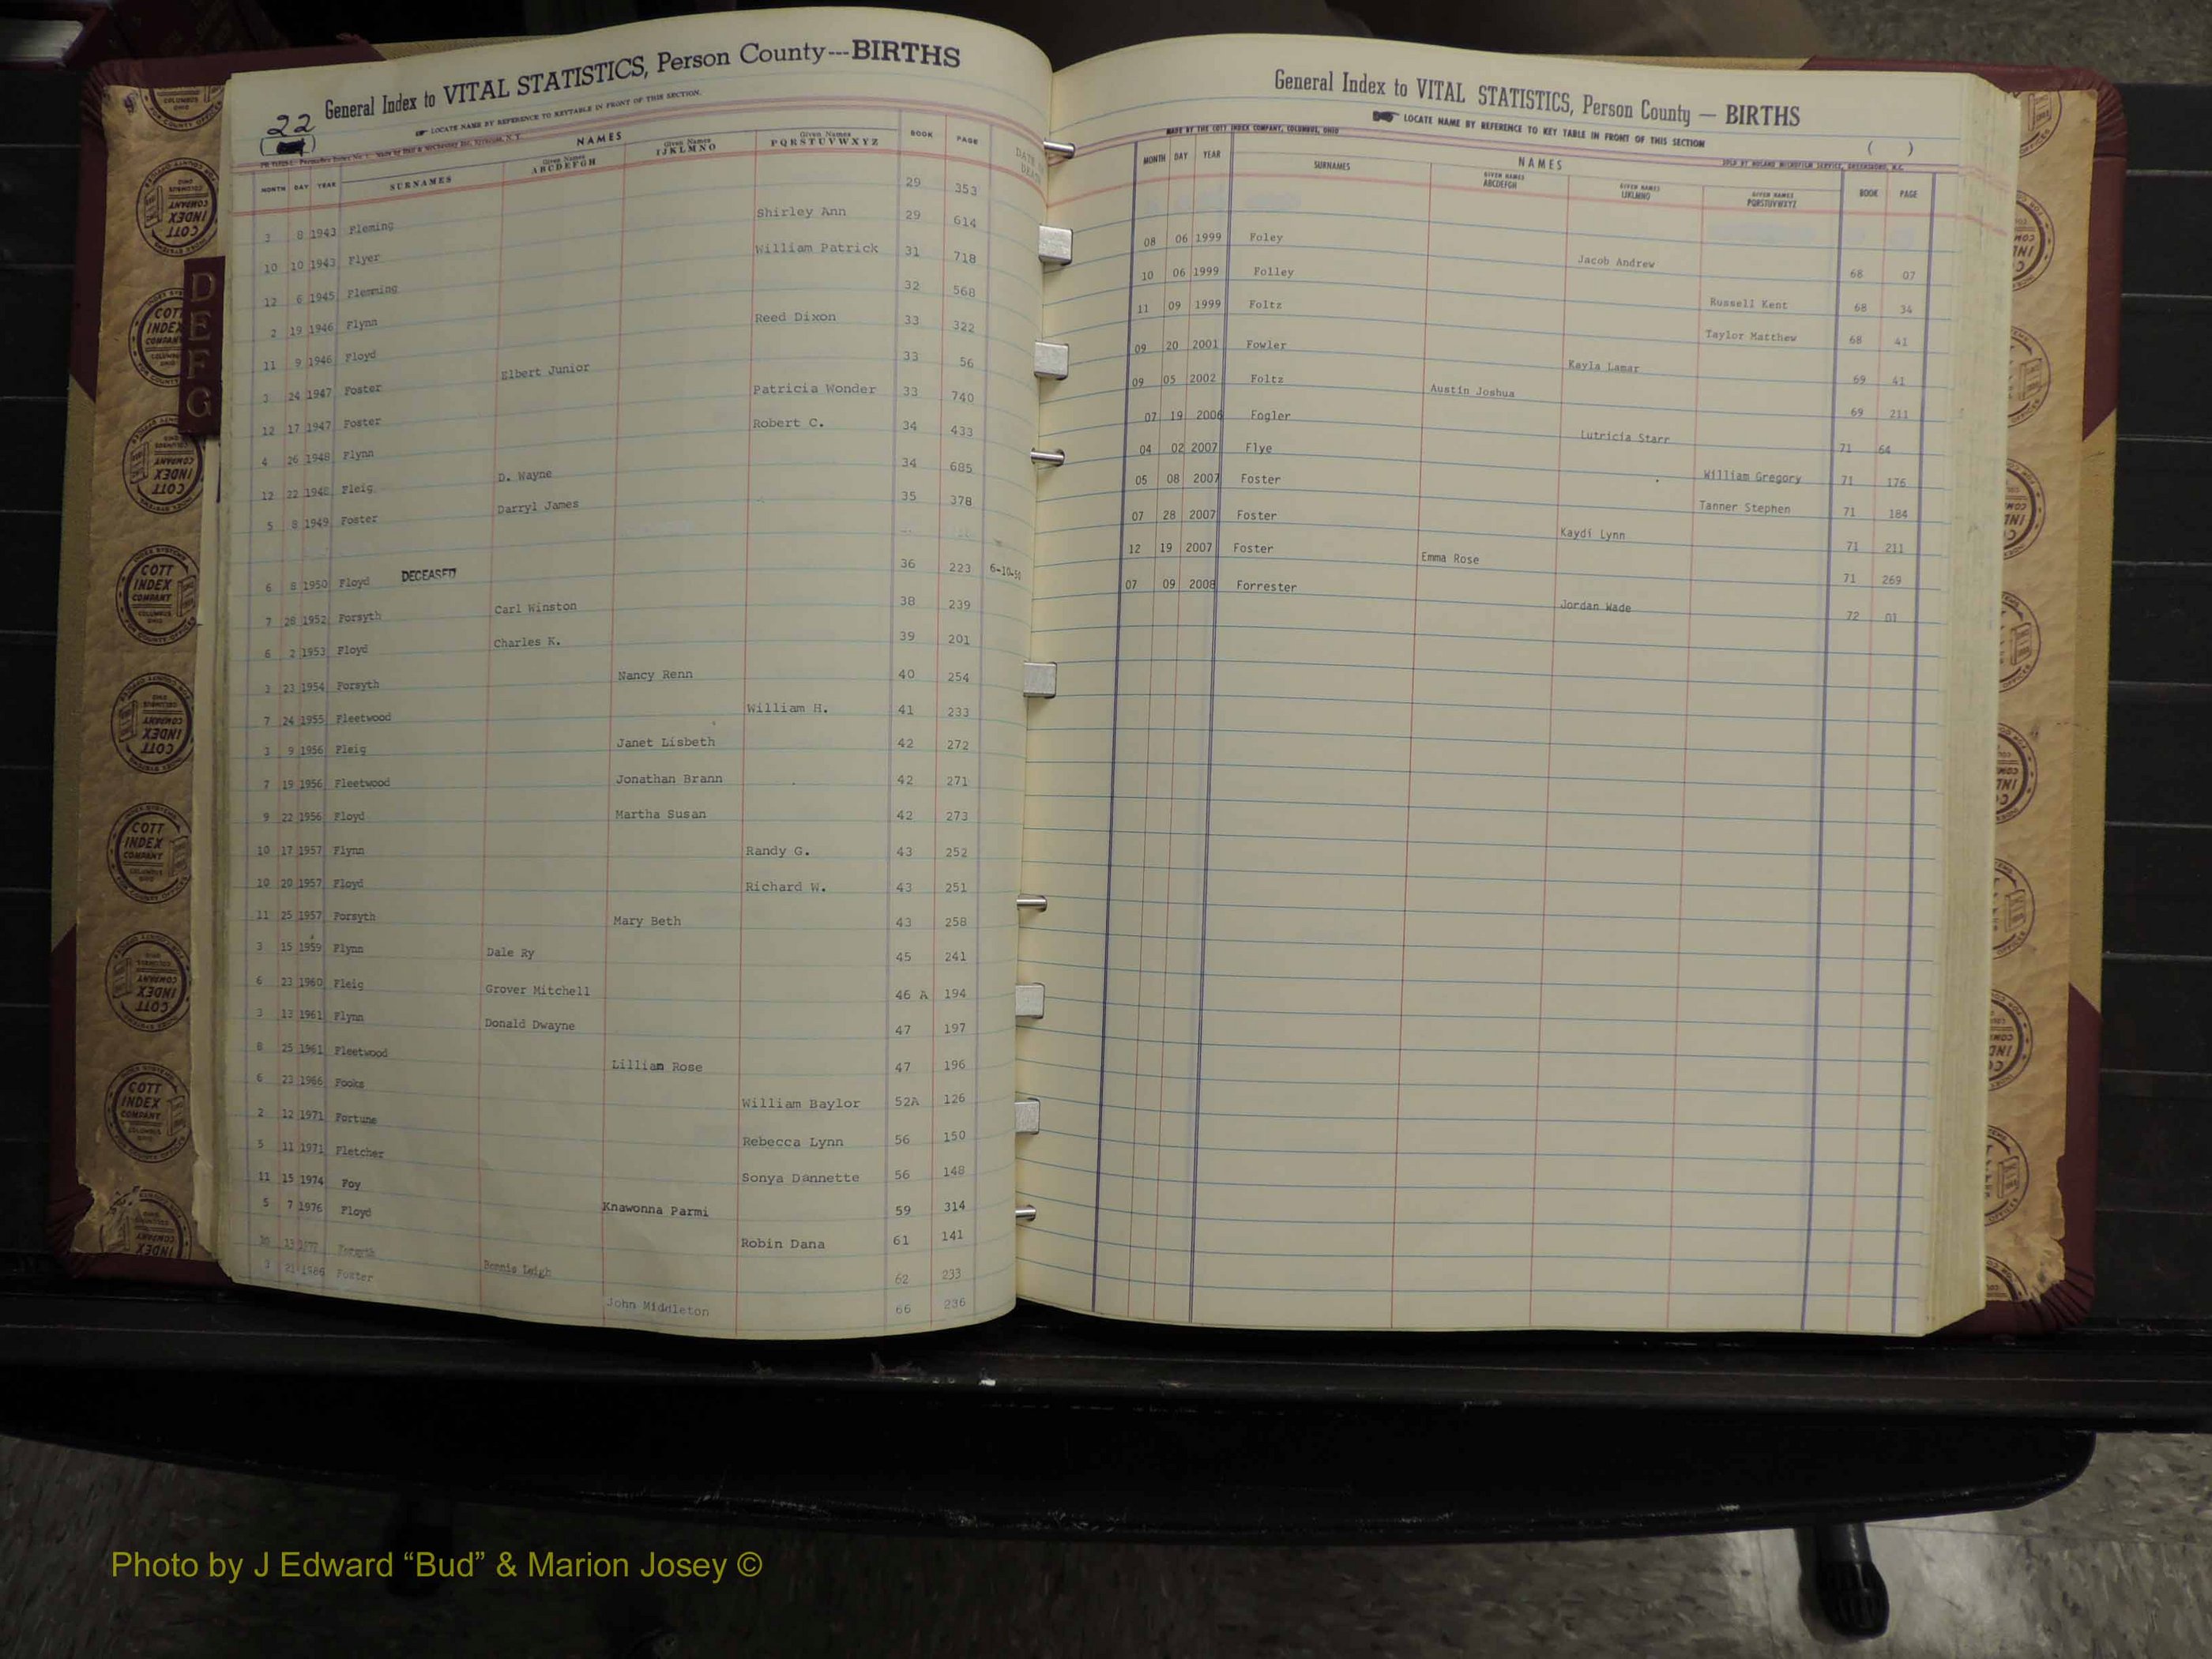 General Index to VITAL STATISTICS, Person County---BIRTHS
22
LOCATE NAME BY REFERENCE TO KEYTABLE IN FRONT OF THIS SECTION.
MONTH DAY YEAR SURNAMES NAMES Given Names ABCDEFGH Given Names IJKLMNO Given Names PQRSTUVWXYZ BOOK PAGE DATE DEATH
3 8 1943 Fleming 29 353
10 10 1943 Flyer Shirley Ann 29 614
12 6 1945 Flemming William Patrick 31 718
2 19 1946 Flynn 32 568
11 9 1946 Floyd Reed Dixon 33 322
3 24 1947 Foster Elbert Junior 33 56
12 17 1947 Foster Patricia Wonder 33 740
4 26 1948 Flynn Robert C. 34 433
12 22 1948 Fleig D. Wayne 34 685
5 8 1949 Foster Darryl James 35 378
6 8 1950 Floyd DECEASED 36 223 6-10-50
7 28 1952 Forsyth Carl Winston 38 239
6 2 1953 Floyd Charles K. 39 201
3 23 1954 Forsyth Nancy Renn 40 254
7 24 1955 Fleetwood William H. 41 233
3 9 1956 Fleig Janet Lisbeth 42 272
7 19 1956 Fleetwood Jonathan Brann 42 271
9 22 1956 Floyd Martha Susan 42 273
10 17 1957 Flynn Randy G. 43 252
10 20 1957 Floyd Richard W. 43 251
11 25 1957 Forsyth Mary Beth 43 258
3 15 1959 Flynn Dale Ry 45 241
6 23 1960 Fleig Grover Mitchell 46 A 194
3 13 1961 Flynn Donald Dwayne 47 197
8 25 1961 Fleetwood Lilliam Rose 47 196
6 23 1966 Fooks William Baylor 52A 126
2 12 1971 Fortune Rebecca Lynn 56 150
5 11 1971 Fletcher Sonya Dannette 56 148
11 15 1974 Foy Knawonna Parmi 59 314
5 7 1976 Floyd Robin Dana 61 141
Forsyth Leigh 62 233
3 21 1986 Foster John Middleton 66 236
General Index to VITAL STATISTICS, Person County — BIRTHS
LOCATE NAME BY REFERENCE TO KEY TABLE IN FRONT OF THIS SECTION
MADE BY THE COTT INDEX COMPANY, COLUMBUS, OHIO
SOLD BY MICROFILM SERVICE, GREENSBORO, N.C.
MONTH DAY YEAR SURNAMES NAMES GIVEN NAMES ABCDEFGH GIVEN NAMES IJKLMNO GIVEN NAMES PQRSTUVWXYZ BOOK PAGE
08 06 1999 Foley Jacob Andrew 68 07
10 06 1999 Folley Russell Kent 68 34
11 09 1999 Foltz Taylor Matthew 68 41
09 20 2001 Fowler Kayla Lamar 69 41
09 05 2002 Foltz Austin Joshua 69 211
07 19 2006 Fogler Lutricia Starr 71 64
04 02 2007 Flye William Gregory 71 176
05 08 2007 Foster Tanner Stephen 71 184
07 28 2007 Foster Kaydi Lynn 71 211
12 19 2007 Foster Emma Rose 71 269
07 09 2008 Forrester Jordan Wade 72 01
D
E
F
G
COTT INDEX COMPANY
Photo by J Edward “Bud” & Marion Josey ©